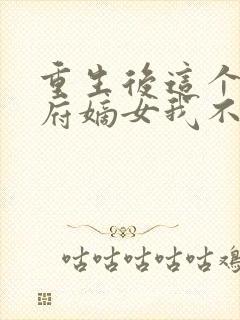 重生後這个
府嫡女我不
咕咕咕咕咕鸡